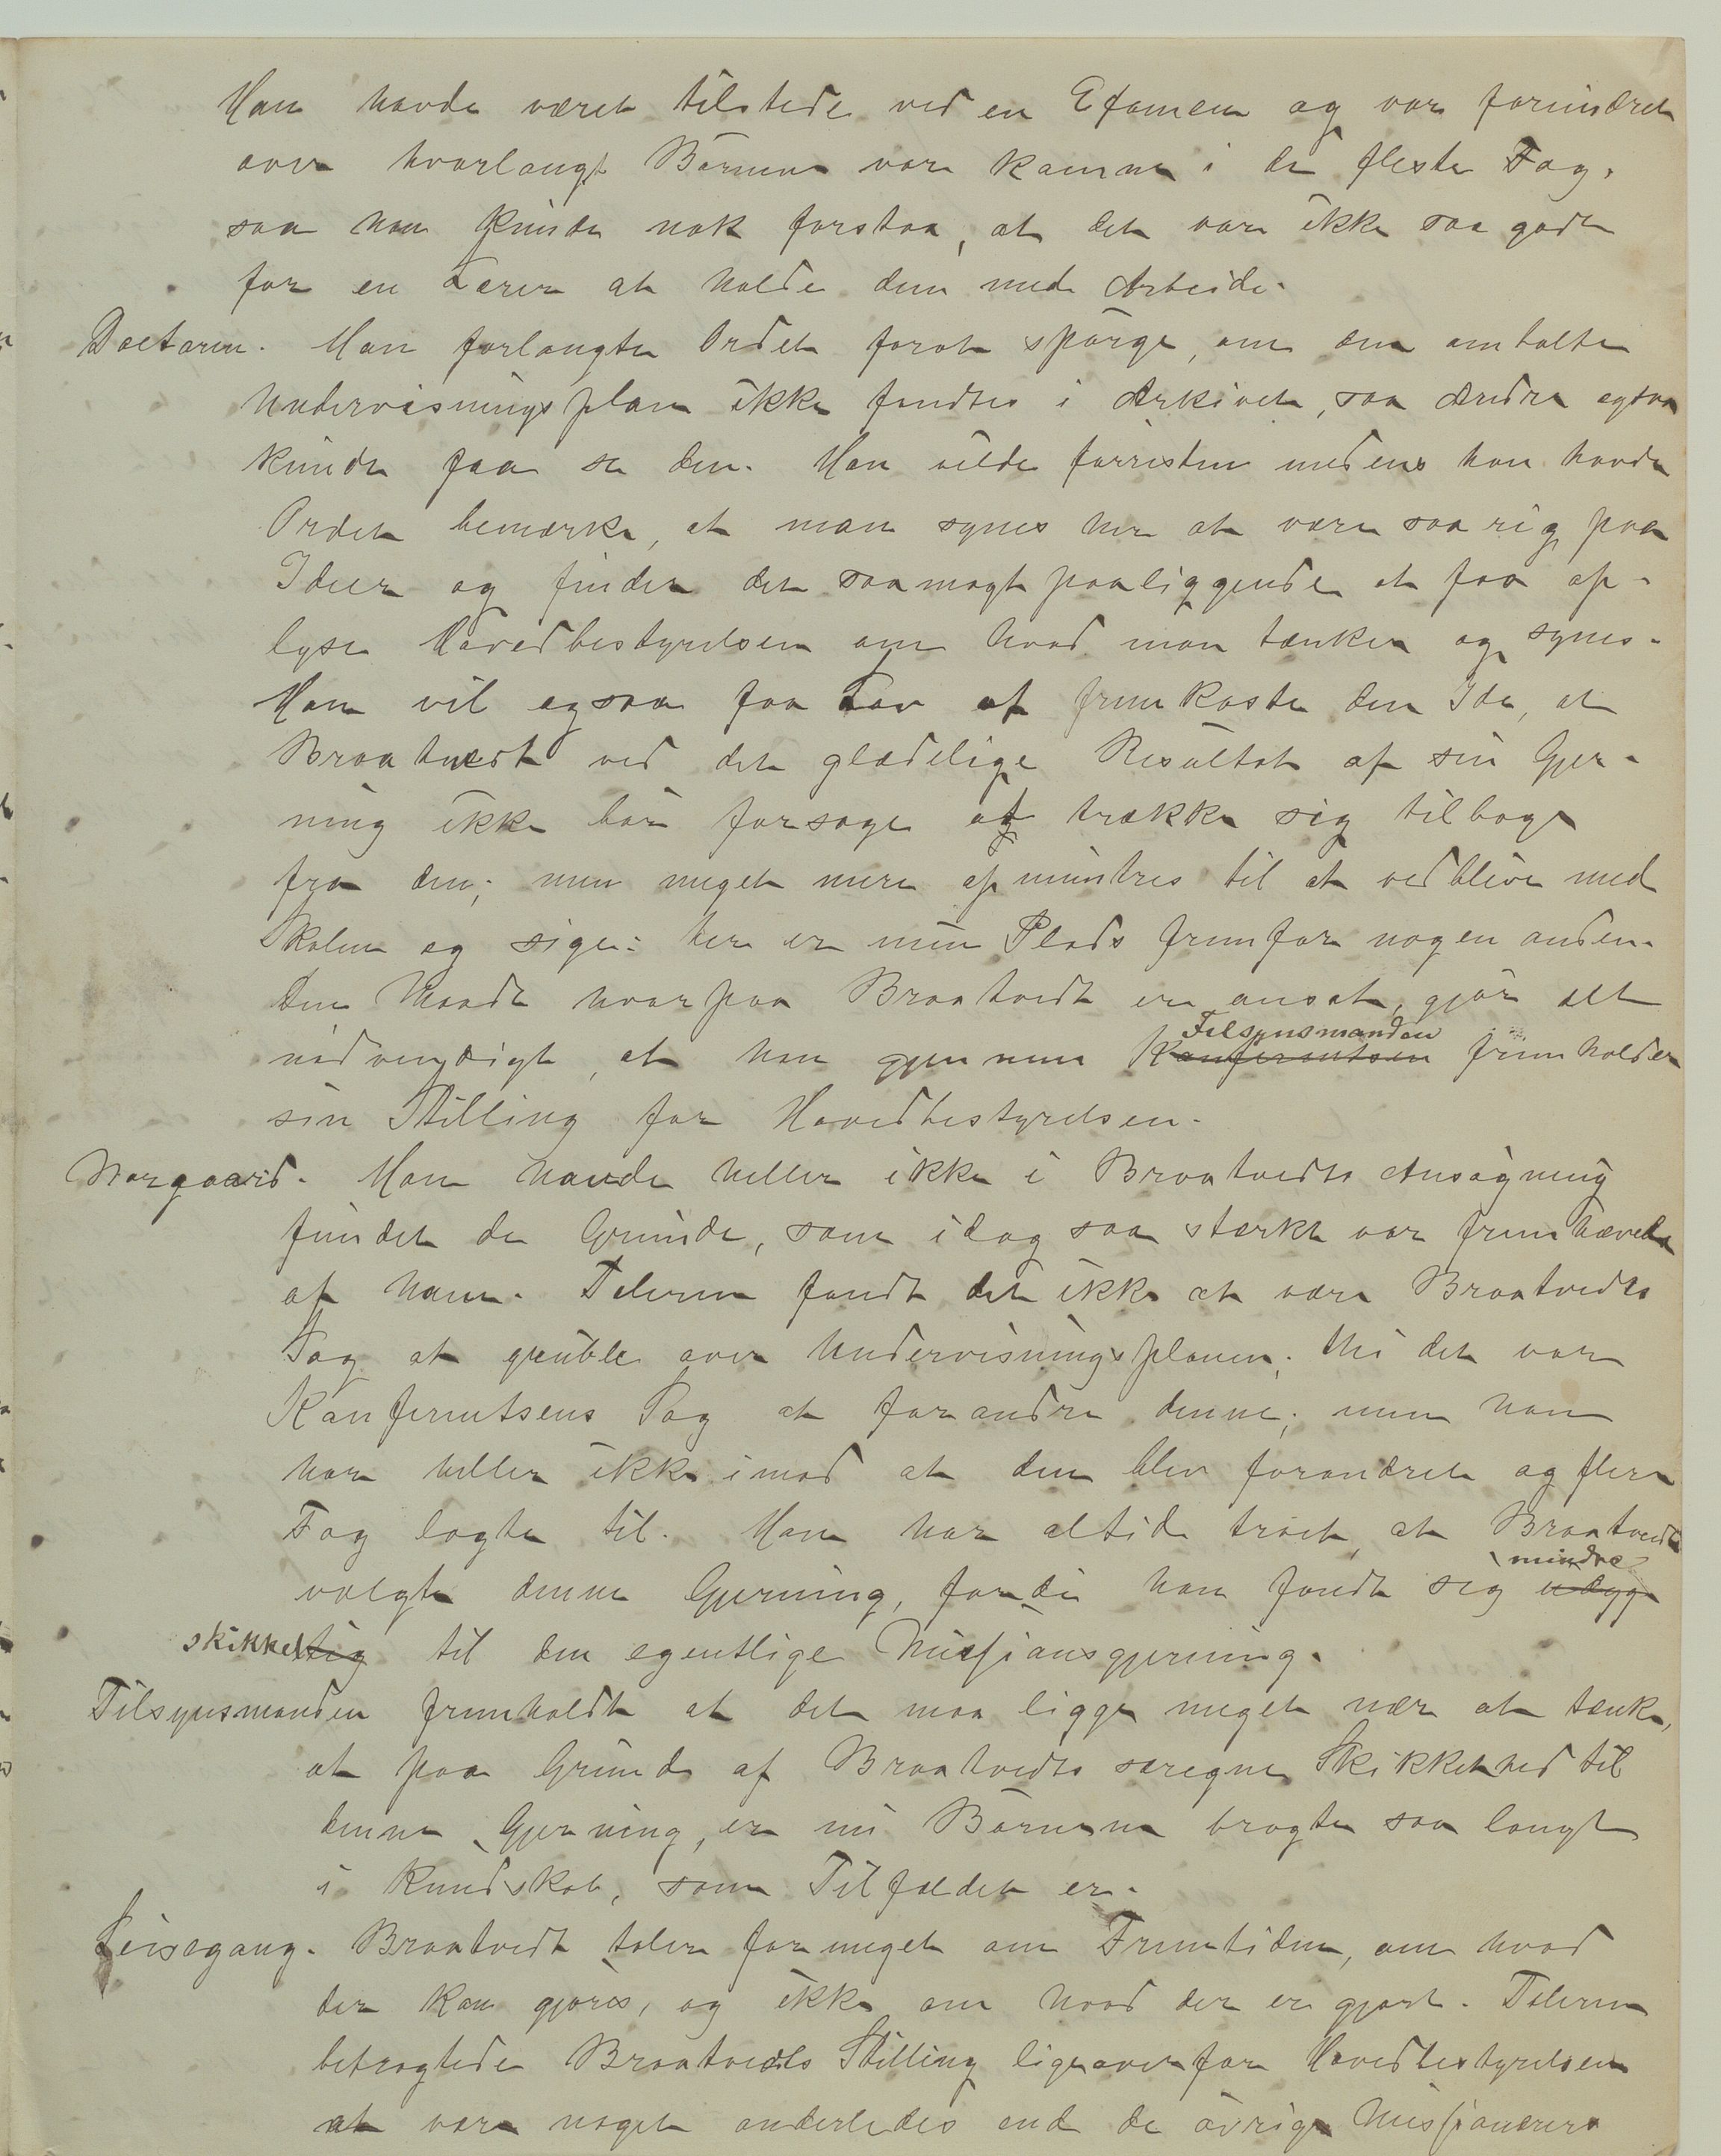 Han havde været tilstede ved en Examen og var forundret
over hvorlangt Börnene vare komne i de fleste Fag,
saa han kunde nok forstaa, at det var ikke saa godt
for en Lærer at holde dem med Arbeide.
Doctoren. Han forlangte Ordet forat spörge, om den omtalte
Undervisningsplan ikke fandtes i Arkivet, saa Andre ogsaa
kunde faa se den. Han vilde forresten medens han havde
Ordet bemærke, at man synes her at være saa rig paa
Ideer og finder det saa magtpaaliggende at faa op-
lyse Hovedbestyrelsen om hvad man tænker og synes.
Han vil ogsaa faa Lov at fremkaste den Ide, at
Braatvedt ved det glædelige Resultat af sin Gjer-
ning ikke bör forsage og trække sig tilbage
fra den; men meget mere opmuntres til at vedblive med
Skolen og sige: her er min Plads fremfor nogen anden.
Den Maade hvorpaa Braatvedt er ansat, gjör det
nödvendigt, at han gjennem Konferentsen Tilsynsmanden fremholder
sin Stilling for Hovedbestyrelsen.
Norgaard. Han havde heller ikke i Braatvedts Ansögning
fundet de Grunde, som idag saa stærkt var fremhævede
af ham. Taleren fandt det ikke at være Braatvedts
Sag at gruble over Undervisningsplanen; thi det var
Konferentsens Sag at forandre denne; men han
har heller ikke imod at den blev forandret og flere
Fag lagte til. Han har altid troet, at Braatvedt
valgte denne Gjerning, fordi han fandt sig mindre
skikket til den egentlige Missionsgjerning.
Tilsynsmanden fremholdt at det maa ligge meget nær at tænke,
at paa Grund af Braatvedts særegne Skikkethed til
denne Gjerning, er nu Börnene bragte saa langt
i Kundskab, som Tilfældet er.
Leisegang. Braatvedt taler for meget om Fremtiden, om hvad
der kan gjöres, og ikke om hvad der er gjort. Taleren
betragtede Braatvedts Stilling ligeoverfor Hovedbestyrelsen
at være noget anderledes end de övrige Missionærers